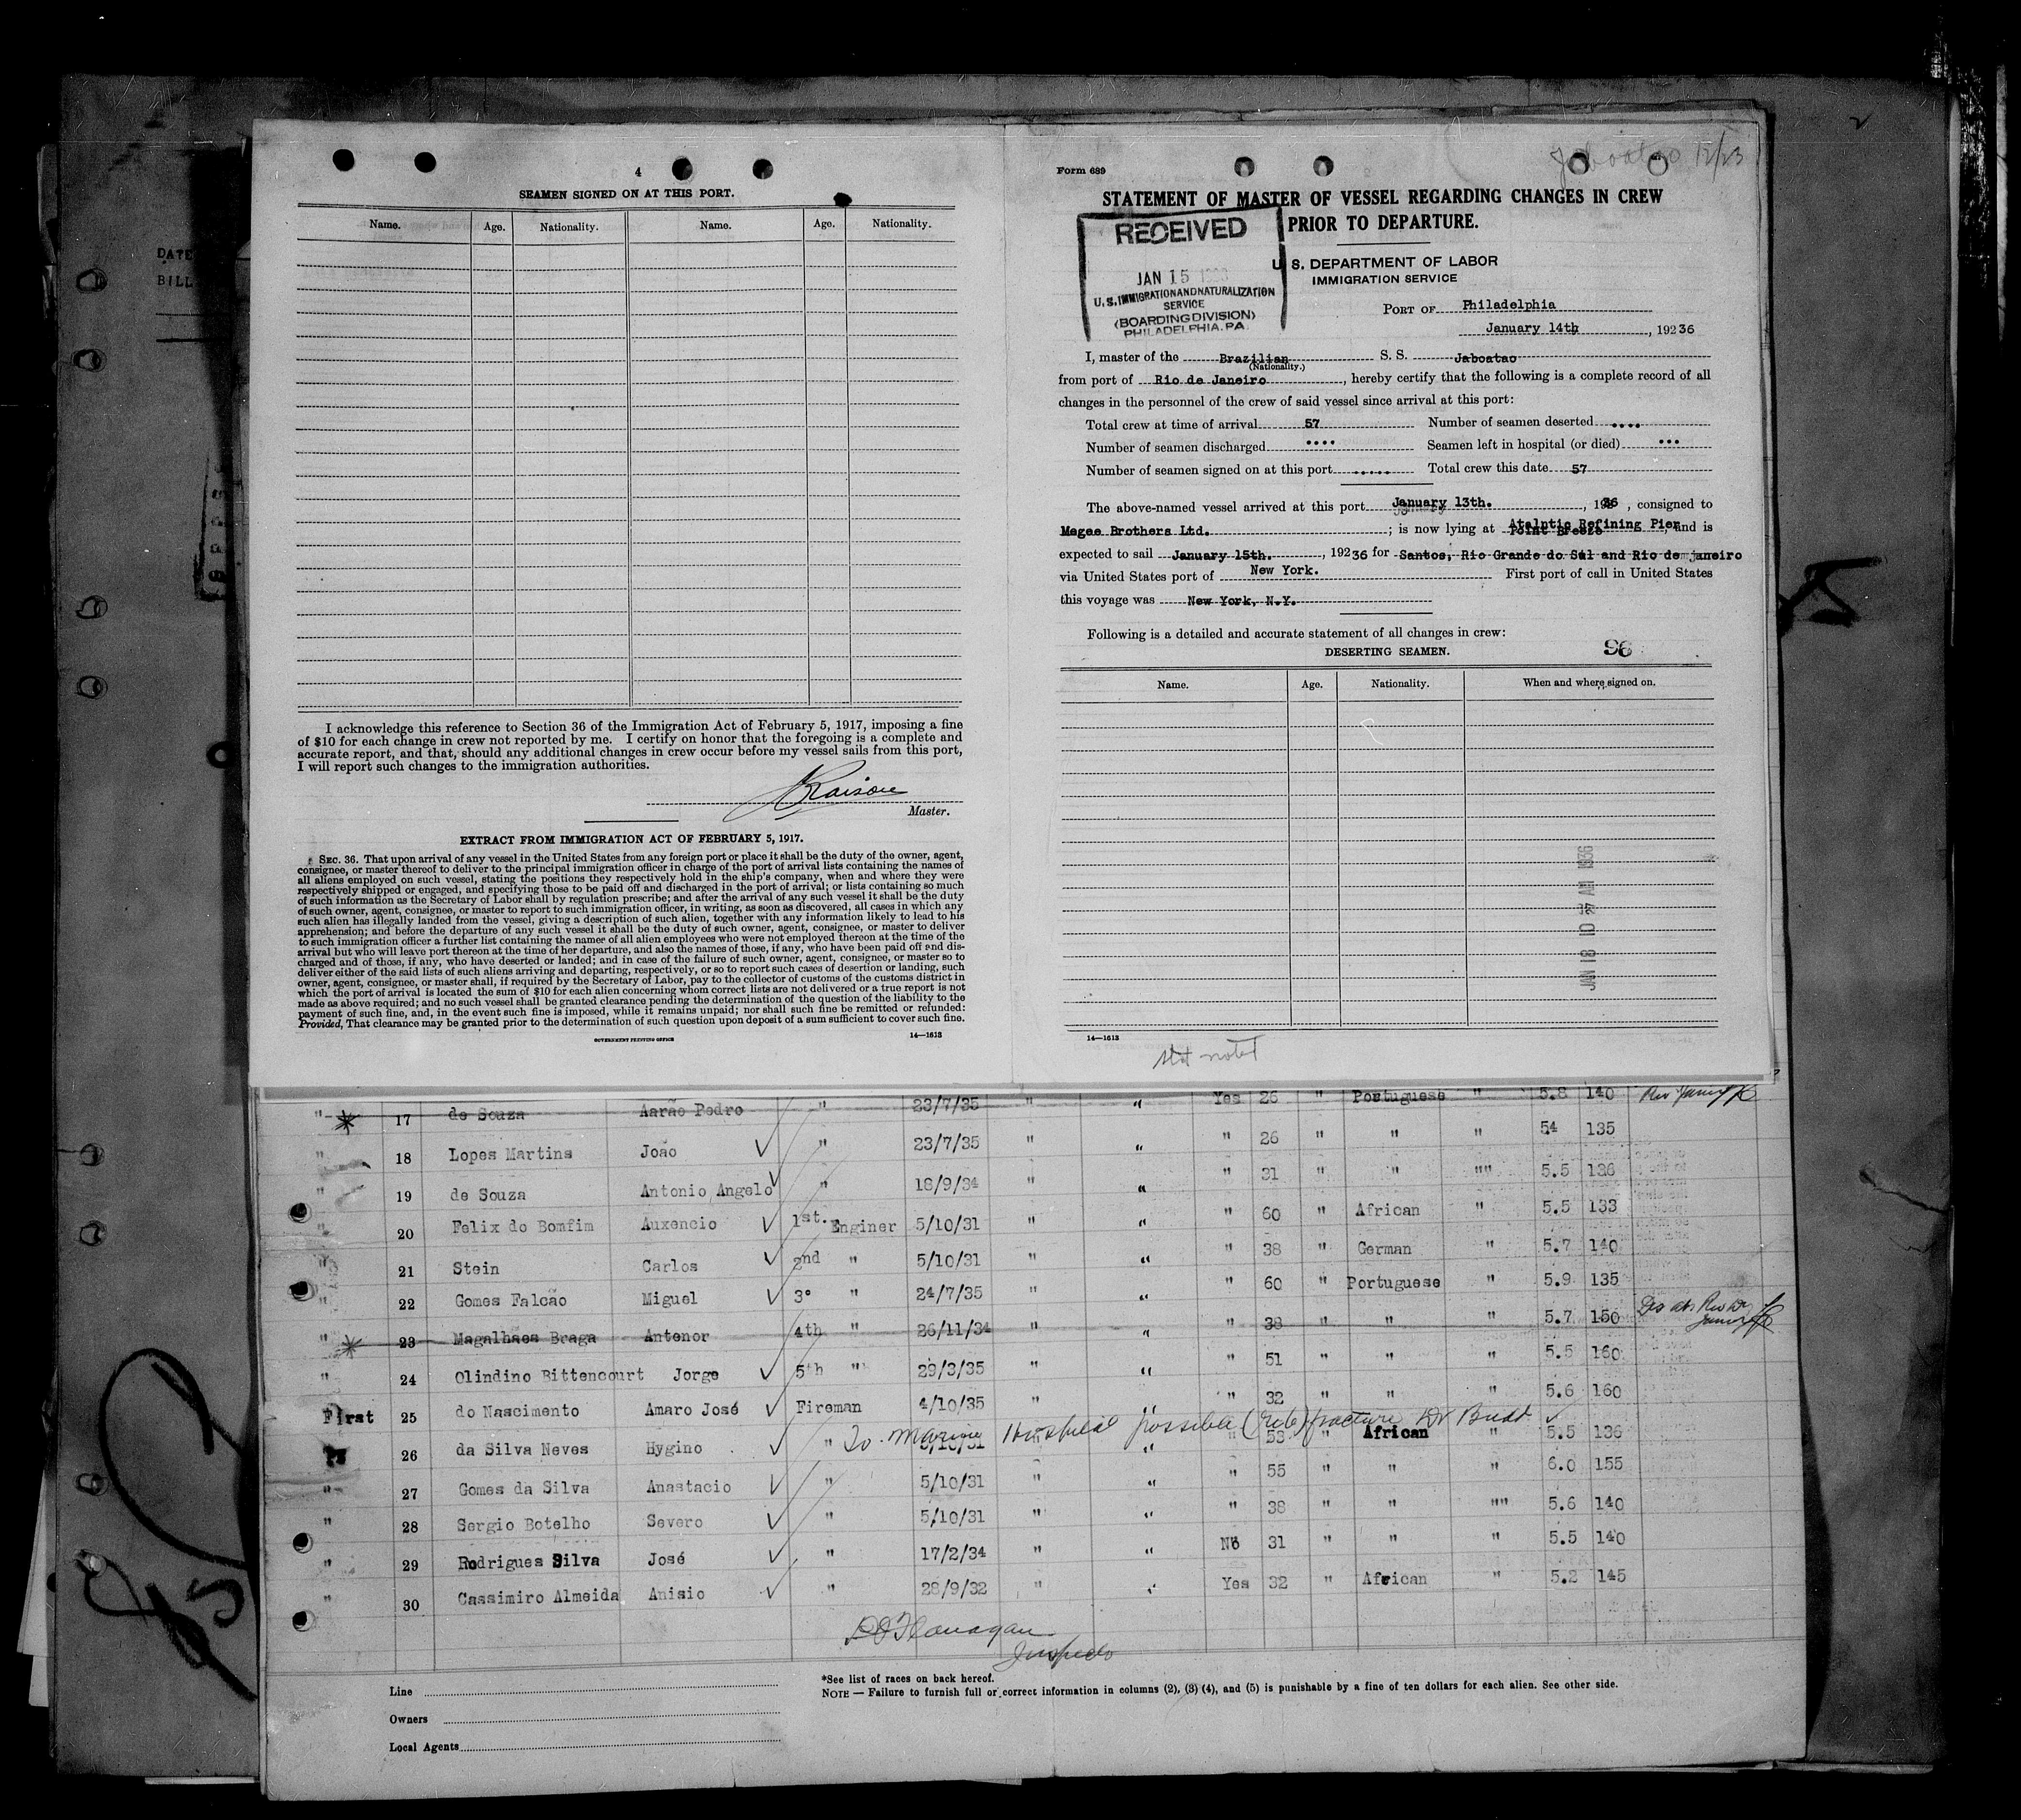 DATE
BILL
4
SEAMEN SIGNED ON AT THIS PORT.
Name. Age. Nationality. Name. Age. Nationality.
I acknowledge this reference to Section 36 of the Immigration Act of February 5, 1917, imposing a fine
of $10 for each change in crew not reported by me. I certify on honor that the foregoing is a complete and
accurate report, and that, should any additional changes in crew occur before my vessel sails from this port,
I will report such changes to the immigration authorities.
Master.
EXTRACT FROM IMMIGRATION ACT OF FEBRUARY 5, 1917.
SEC. 36. That upon arrival of any vessel in the United States from any foreign port or place it shall be the duty of the owner, agent,
consignee, or master thereof to deliver to the principal immigration officer in charge of the port of arrival lists containing the names of
all aliens employed on such vessel, stating the positions they respectively hold in the ship's company, when and where they were
respectively shipped or engaged, and specifying those to be paid off and discharged in the port of arrival; or lists containing so much
of such information as the Secretary of Labor shall by regulation prescribe; and after the arrival of any such vessel it shall be the duty
of such owner, agent, consignee, or master to report to such immigration officer, in writing, as soon as discovered, all cases in which any
such alien has illegally landed from the vessel, giving a description of such alien, together with any information likely to lead to his
apprehension; and before the departure of any such vessel it shall be the duty of such owner, agent, consignee, or master to deliver
to such immigration officer a further list containing the names of all alien employees who were not employed thereon at the time of the
arrival but who will leave port thereon at the time of her departure, and also the names of those, if any, who have been paid off and dis-
charged and of those, if any, who have deserted or landed; and in case of the failure of such owner, agent, consignee, or master so to
deliver either of the said lists of such aliens arriving and departing, respectively, or so to report such cases of desertion or landing, such
owner, agent, consignee, or master shall, if required by the Secretary of Labor, pay to the collector of customs of the customs district in
which the port of arrival is located the sum of $10 for each alien concerning whom correct lists are not delivered or a true report is not
made as above required; and no such vessel shall be granted clearance pending the determination of the question of the liability to the
payment of such fine, and, in the event such fine is imposed, while it remains unpaid; nor shall such fine be remitted or refunded:
Provided, That clearance may be granted prior to the determination of such question upon deposit of a sum sufficient to cover such fine.
GOVERNMENT PRINTING OFFICE 14—1613
Jaboatao 12/23
Form 689
STATEMENT OF MASTER OF VESSEL REGARDING CHANGES IN CREW
PRIOR TO DEPARTURE.
RECEIVED
JAN 15
U.S. IMMIGRATION AND NATURALIZATION
SERVICE
(BOARDING DIVISION)
PHILADELPHIA, PA.
U. S. DEPARTMENT OF LABOR
IMMIGRATION SERVICE
PORT OF Philadelphia
January 14th, 19236
I, master of the Brazilian S. S. Jaboatao
(Nationality.)
from port of Rio de Janeiro, hereby certify that the following is a complete record of all
changes in the personnel of the crew of said vessel since arrival at this port:
Total crew at time of arrival 57 Number of seamen deserted ....
Number of seamen discharged .... Seamen left in hospital (or died) ...
Number of seamen signed on at this port ..... Total crew this date 57
The above-named vessel arrived at this port January 13th., 1936, consigned to
Magee Brothers Ltd.; is now lying at Atalntic Refining Pier Point Breeze, and is
expected to sail January 15th., 19236 for Santos, Rio Grande do Sul and Rio de janeiro
via United States port of New York. First port of call in United States
this voyage was New York, N.Y.
Following is a detailed and accurate statement of all changes in crew:
DESERTING SEAMEN. 96
Name. Age. Nationality. When and where signed on.
JAN 18 10 27 AM 1936
14—1613
17 de Souza Aarão Pedro " 23/7/35 " " Yes 26 " Portuguese " 5.8 140
" 18 Lopes Martins João " 23/7/35 " " " 26 " " " 54 135
" 19 de Souza Antonio Angelo " 18/9/34 " " " 31 " " "" 5.5 136
" 20 Felix do Bomfim Auxencio 1st. Enginer 5/10/31 " " " 60 " African " 5.5 133
" 21 Stein Carlos 2nd " 5/10/31 " " " 38 " German " 5.7 140
" 22 Gomes Falcão Miguel 3° " 24/7/35 " " " 60 " Portuguese " 5.9 135
" 23 Magalhaes Braga Antenor 4th " 26/11/34 " " 38 " " " 5.7 150
" 24 Olindino Bittencourt Jorge 5th " 29/3/35 " " " 51 " " " 5.5 160
First 25 do Nascimento Amaro José Fireman 4/10/35 " " " 32 " " " 5.6 160
To Marine Hospital possible (rib) fracture Dr Budd
26 da Silva Neves Hygino " 5/10/31 " " 53 " African " 5.5 136
" 27 Gomes da Silva Anastacio " 5/10/31 " " " 55 " " " 6.0 155
" 28 Sergio Botelho Severo " 5/10/31 " " " 38 " " "" 5.6 140
" 29 Rodrigues Silva José " 17/2/34 " " No 31 " " " 5.5 140
" 30 Cassimiro Almeida Anisio " 28/9/32 " " Yes 32 " African " 5.2 145
Flanagan
*See list of races on back hereof.
NOTE — Failure to furnish full or correct information in columns (2), (3) (4), and (5) is punishable by a fine of ten dollars for each alien. See other side.
Line
Owners
Local Agents